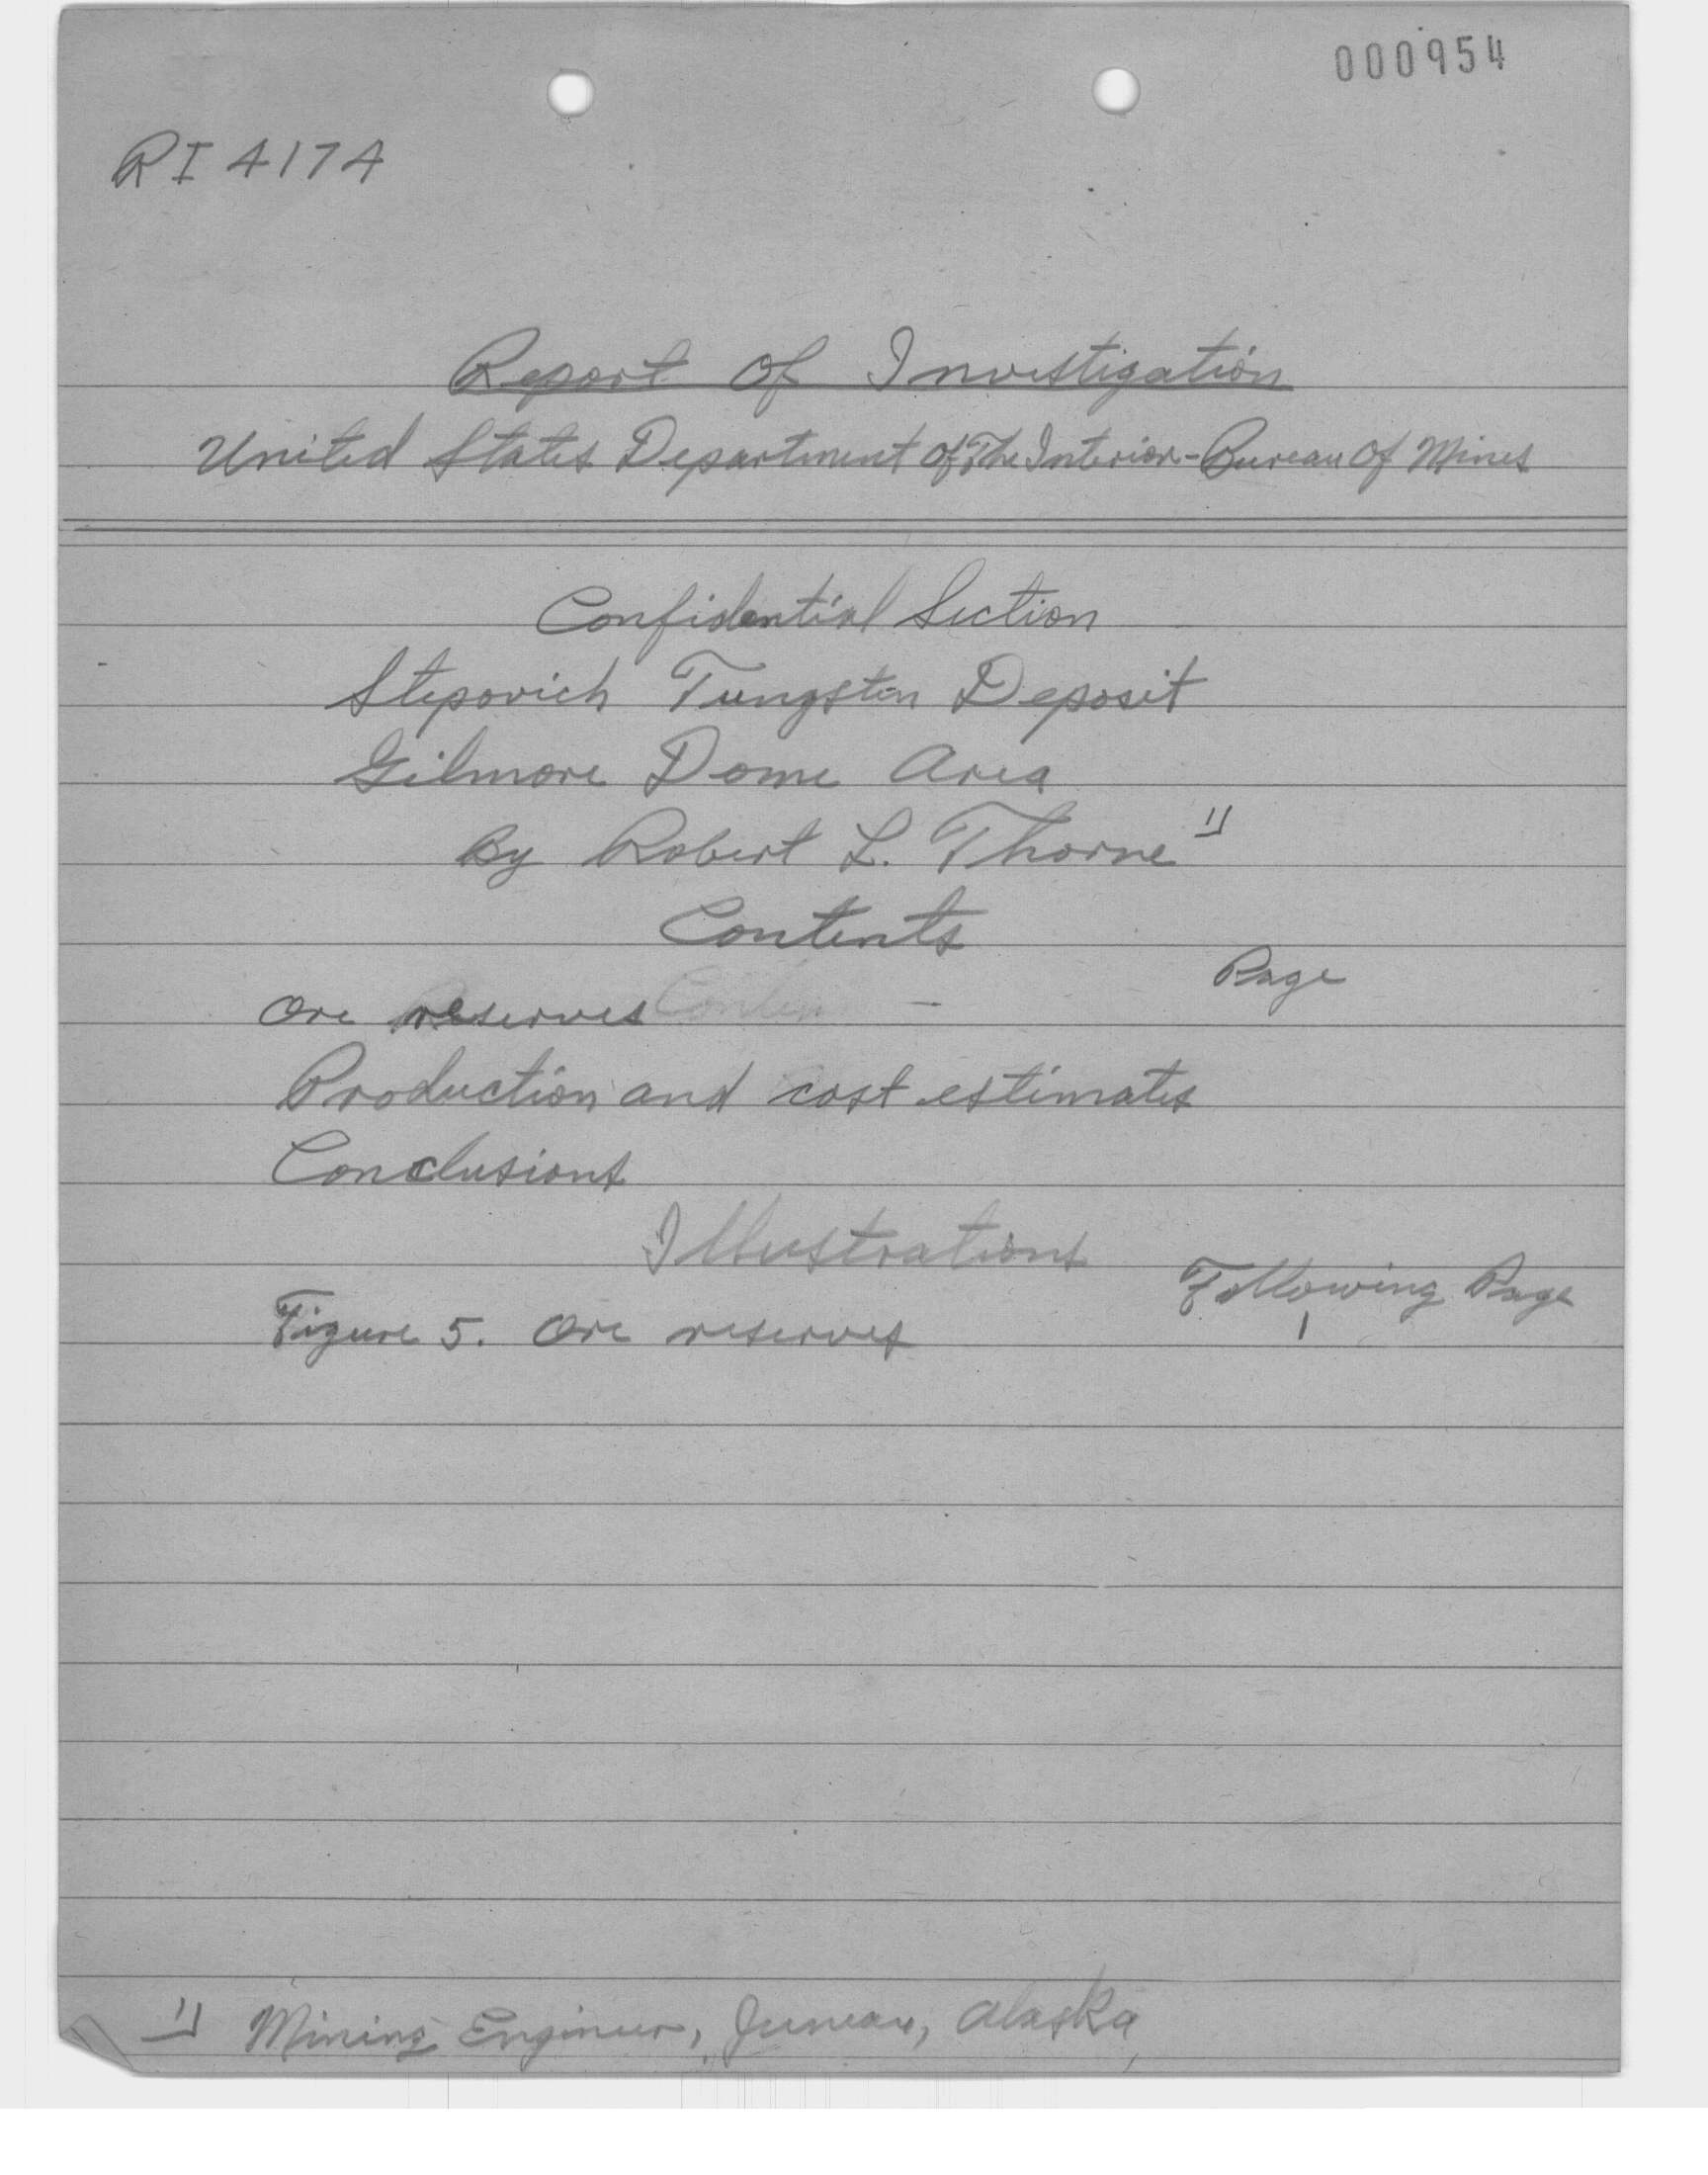 000954
RI 4174
Report Of Investigation
United States Department Of The Interior-Bureau Of Mines
Confidential Section
Stepovich Tungsten Deposit
Gilmore Dome Area
By Robert L. Thorne 1/
Contents
Page
Ore reserves
Production and cost estimates
Conclusions
Illustrations
Following Page
Figure 5. Ore reserves 1
1/ Mining Engineer, Juneau, Alaska